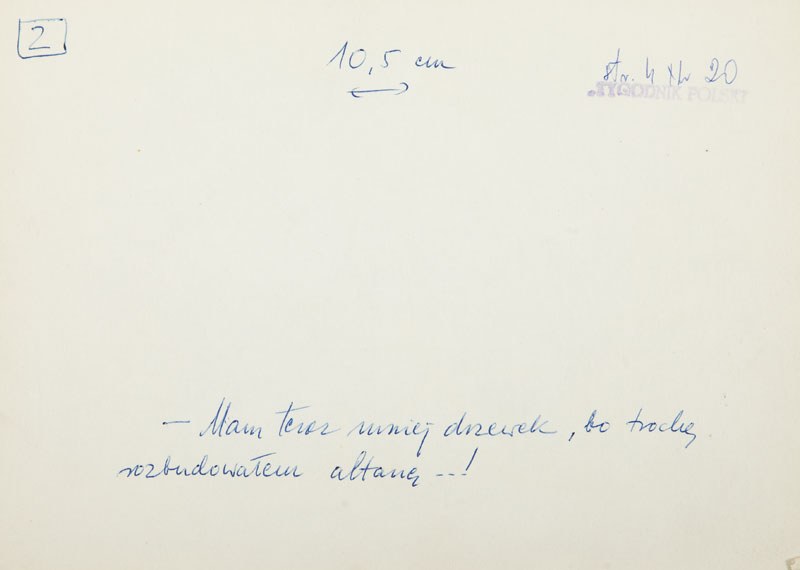 2
10,5 cm
str. 4 Nr 20
TYGODNIK POLSKI
– Mam teraz mniej drzewek, bo trochę
rozbudowałem altanę...!